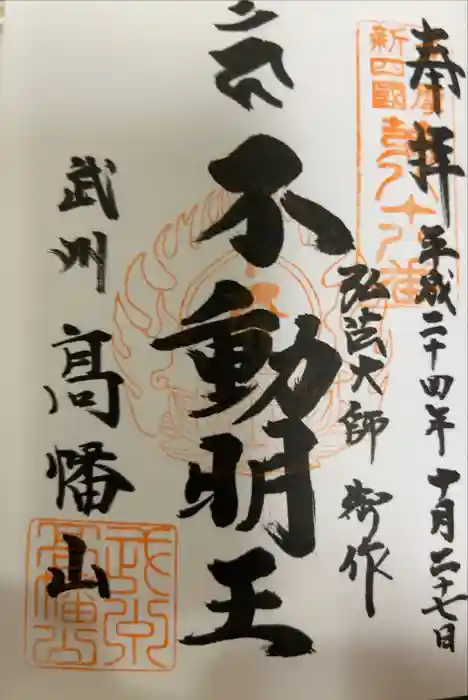 奉拝
平成二十四年十月二十七日
弘法大師 御作
不動明王
武州
高幡山